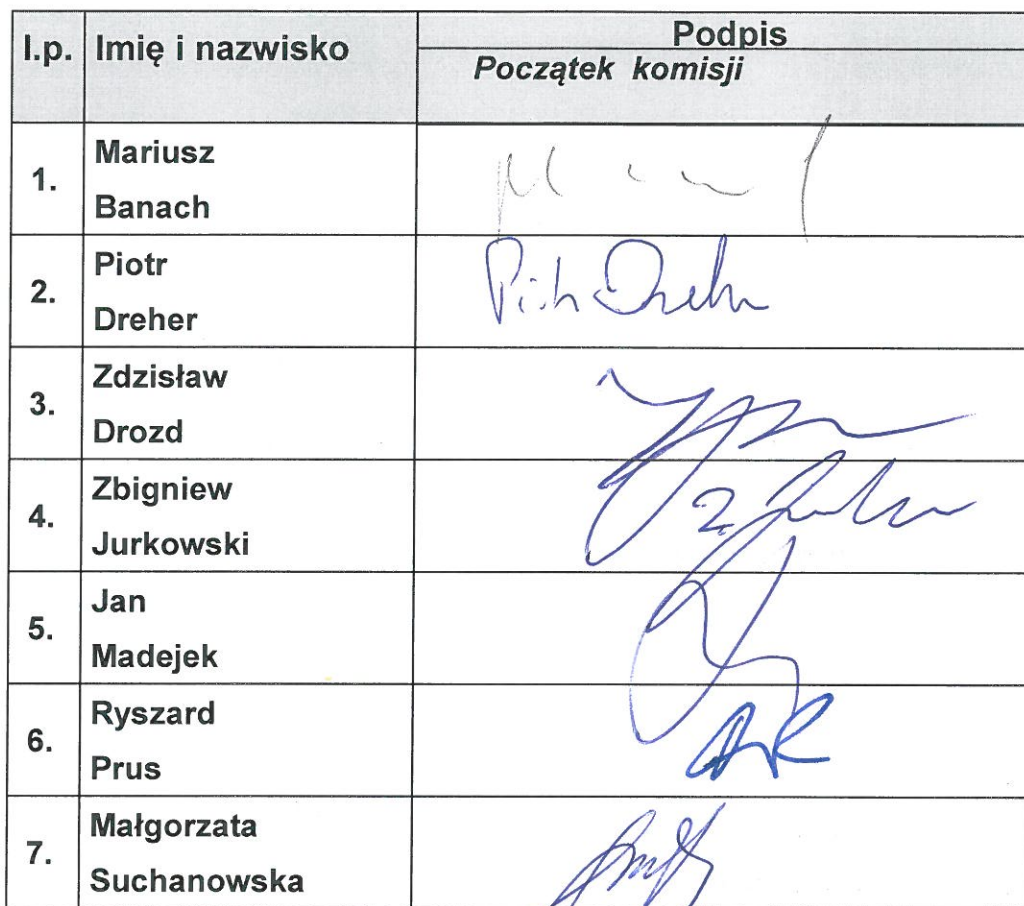 l.p. Imię i nazwisko Podpis
Początek komisji
1. Mariusz
Banach
2. Piotr
Dreher
Piotr Dreher
3. Zdzisław
Drozd
4. Zbigniew
Jurkowski
5. Jan
Madejek
6. Ryszard
Prus
7. Małgorzata
Suchanowska